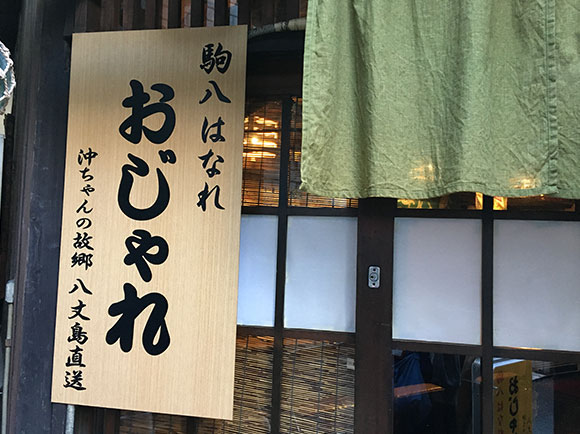 駒八はなれ
おじゃれ
沖ちゃんの故郷 八丈島直送
おじ